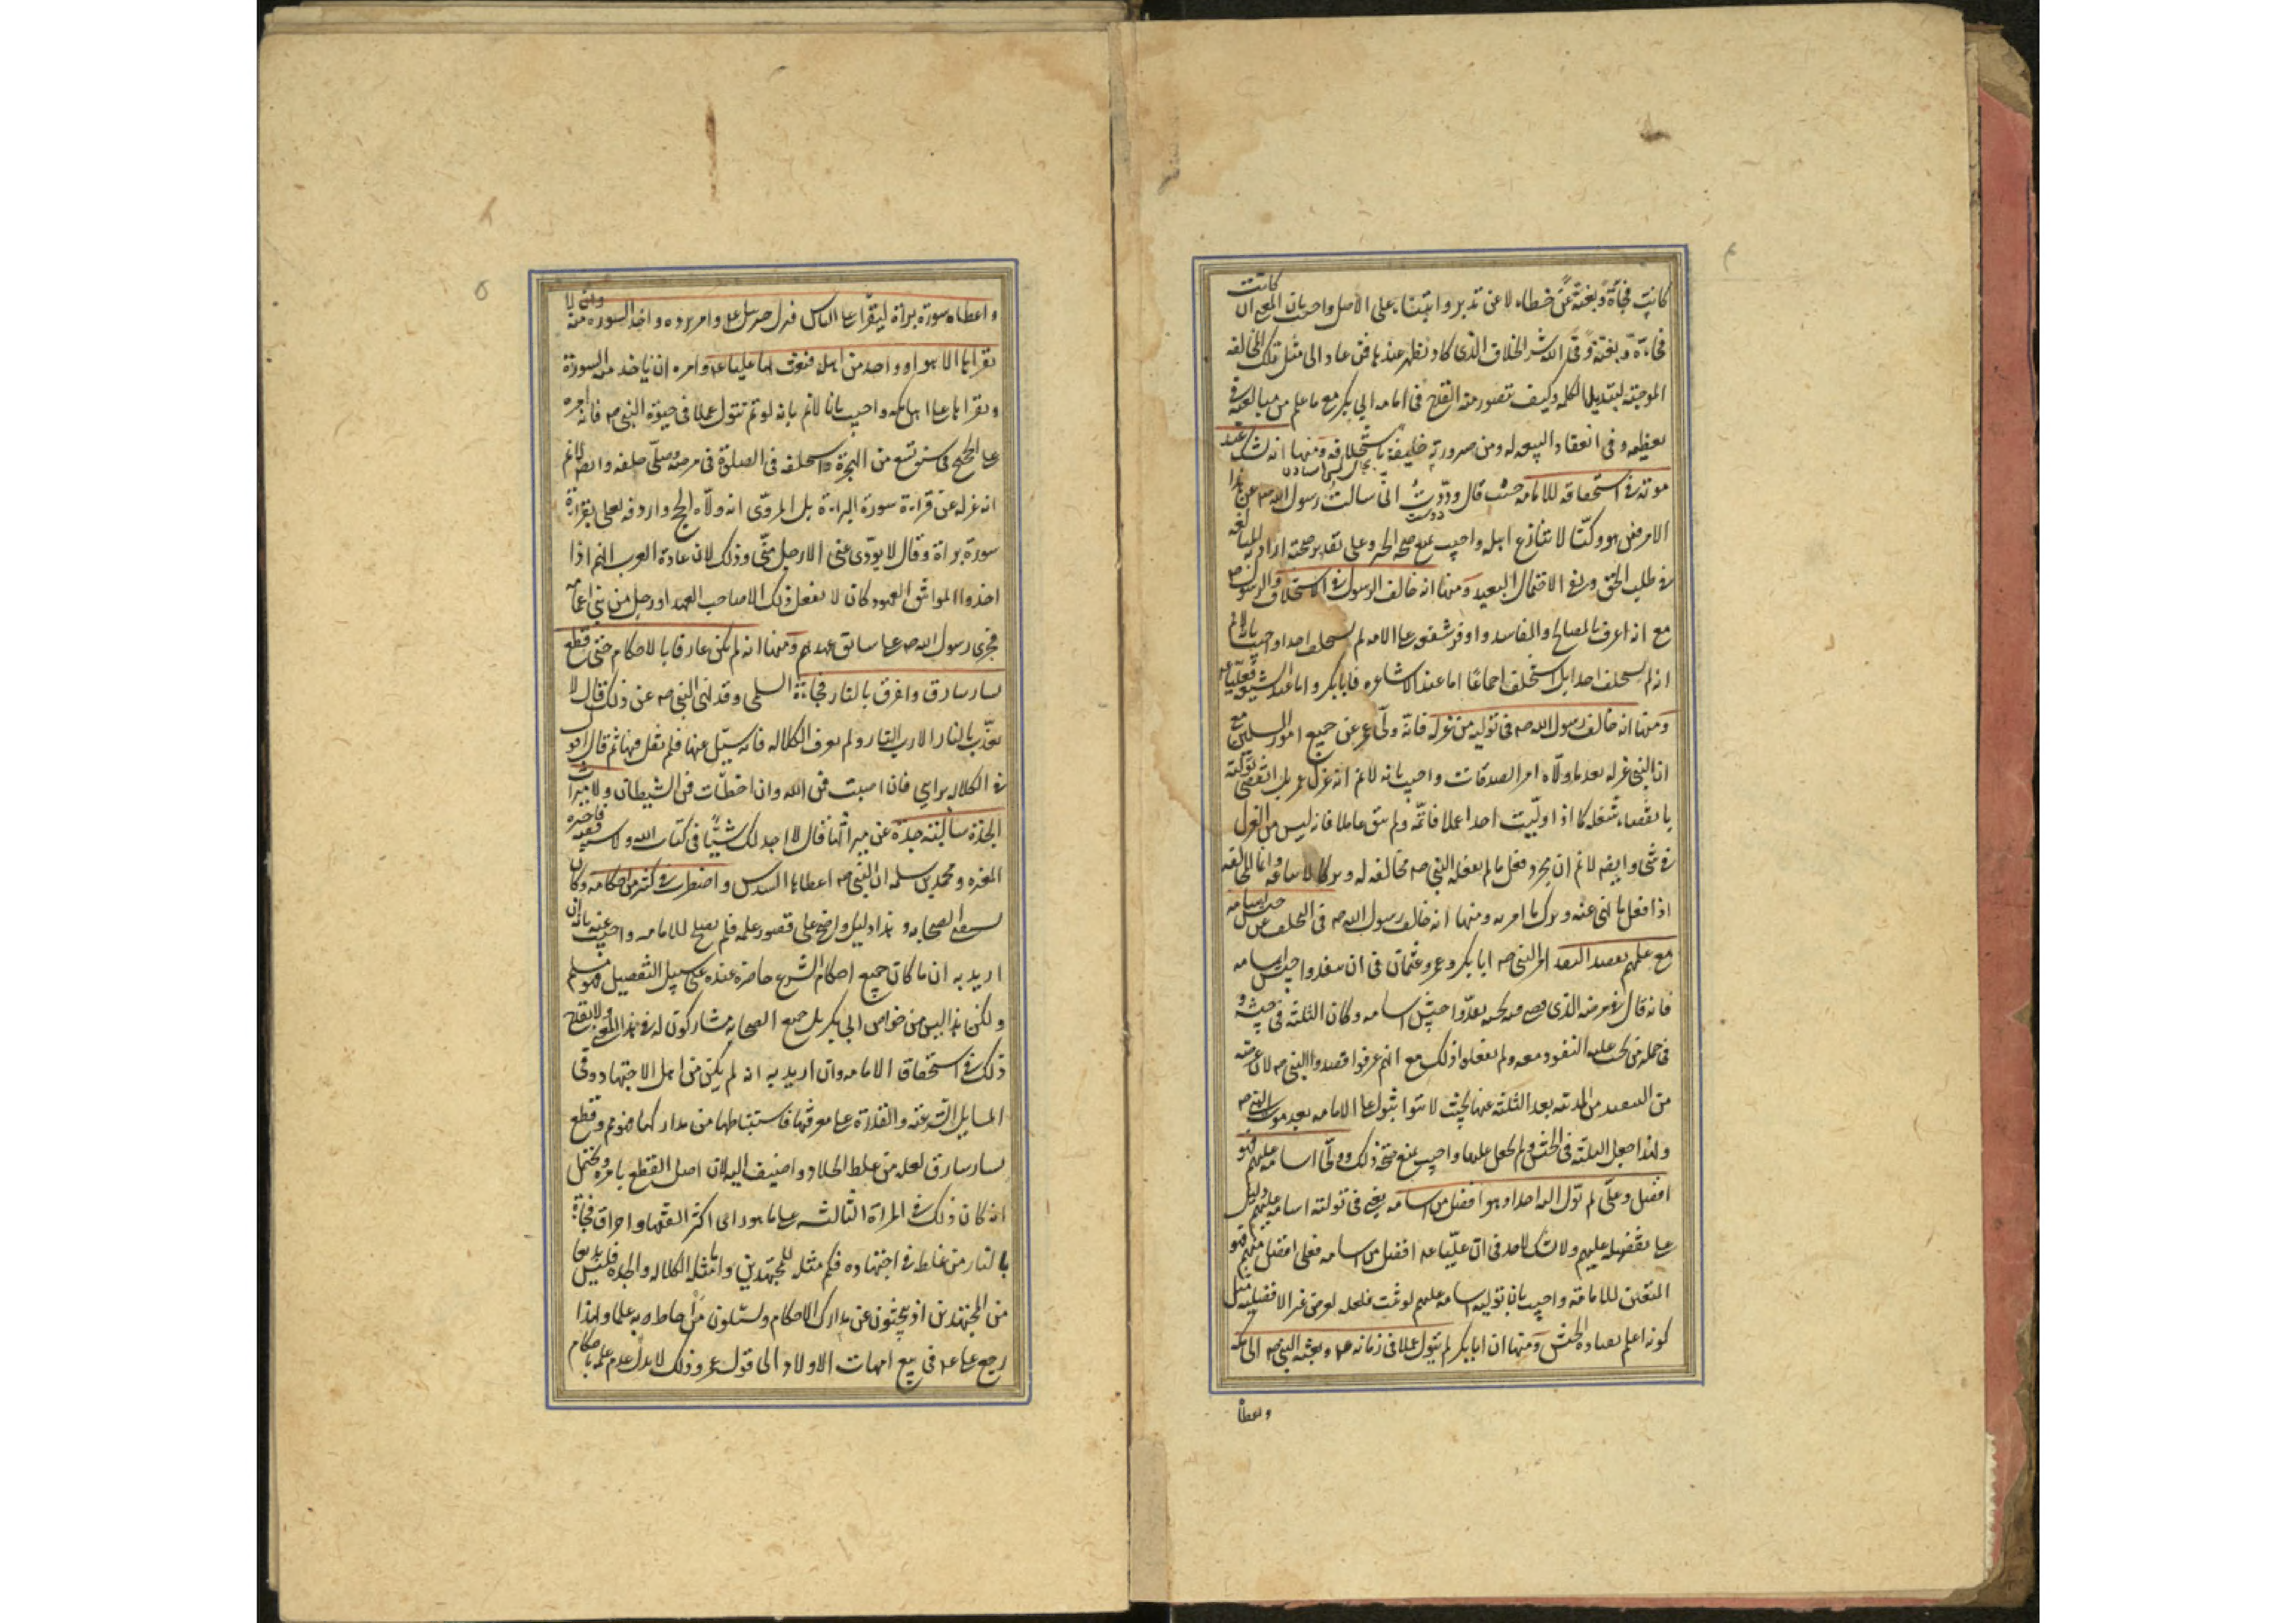 كانت فجأة وبغتة عن خطاء لا عن تدبر وابتناء على الاصل واجيب بان المعنى ان كانت
فجاءة وبغتة وقى الله شر الخلاف الذى كاد يظهر عندها فمن عاد الى مثل تلك المخالفة
الموجبة لتبديل الكلمة وكيف يتصور منه القدح فى امامة ابى بكر مع ما علم من مبالغته فى
تعظيمه وفى انعقاد البيعة له ومن صيرورته خليفة باستخلافه ومنها انه شك عند
موته فى استحقاقه للامامة حيث قال وددت انى سالت رسول الله ص عن هذا
الامر فيمن هو وكنا لا ننازع اهله واجيب بمنع صحة الخبر وعلى تقدير صحته اراد به المبالغة
فى طلب الحق ونفى الاحتمال البعيد ومنها انه خالف الرسول فى الاستخلاف والرسول ص
مع انه اعرف بالمصالح والمفاسد واوفر شفقة على الامة لم يستخلف احدا واجيب بانا لانم
انه لم يستخلف احدا بل استخلف اجماعا اما عند الاشاعرة فابا بكر واما عند الشيعة فعليا ع
ومنها انه خالف رسول الله ص فى توليه من عزله فانه ولى عمر جميع امور المسلمين مع
ان النبى عزله بعد ما ولاه امر الصدقات واجيب بانه لانم انه عزل عمر بل انقضى توليته
بانقضاء شغله كما اذا وليت احدا عملا فاتمه ولم يبق عاملا فانه ليس من العزل
فى شئ وايضه لانم ان مجرد فعل ما لم يفعله النبى ص مخالفة له وتركا لاتباعه وانما المخالفة
اذا فعل ما نهى عنه وترك ما امر به ومنها انه خالف رسول الله ص فى التخلف عن جيش اسامة
مع علمهم بقصد البعد امر النبى ص ابا بكر وعمر وعثمان فى ان ينفذوا جيش اسامة
فانه قال فى مرضه الذى قضى فيه نحبه نفذوا جيش اسامة وكان الثلثة فى جيشه و
فى جملة من يجب عليه النفوذ معه ولم يفعلوا ذلك مع انهم عرفوا قصد النبى ص لان غرضه
من التبعيد من المدينة بعد الثلثة عنها بحيث لا يتوثبوا على الامامة بعد موت النبى ص
ولهذا جعل الثلثة فى الجيش ولم يجعل عليا واجيب بمنع صحة ذلك وولى اسامة عليهم فهو
افضل وعلى لم يول عليه احدا وهو افضل من اسامة يعنى فى توليته اسامة عليهم دليل
على تفضيله عليهم ولا شك لاحد فى ان عليا ع افضل من اسامة فعلى افضل منهم فهو
المتعين للامامة واجيب بان توليه اسامة عليهم لو ثبت فلعله لغرض غير الافضلية مثل
كونه اعلم بقيادة الجيش ومنها ان ابا بكر لم يتول عملا فى زمانه ع وبعثه النبى ص الى مكة
واعطاه
واعطاه سورة براة ليقرأ على الناس فنزل جبرئيل ع وامر برده واخذ السورة منه وان لا
يقراها الا هو او واحد من اهله فبعث بها عليا ع وامره ان ياخذ منه السورة
ويقراها على اهل مكة واجيب بانا لانم بانه لو لم يتول عملا فى حيوة النبى ص فانه امره
على الحج فى سنة تسع من الهجرة واستخلفه فى الصلوة فى مرضه وصلى خلفه وايضه لانم
انه عزله عن قراءة سورة البراءة بل المروى انه ولاه الحج واردفه بعلى بقراءة
سورة براة وقال لا يؤدى عنى الا رجل منى وذلك لان عادة العرب انهم اذا
اخذوا المواثيق والعهود كان لا يفعل ذلك الا صاحب العهد او رجل من بنى اعمامه
فجرى رسول الله ص على سابق عهدهم ومنها انه لم يكن عارفا بالاحكام حتى قطع
يسار سارق واحرق بالنار فجاءة السلمى وقد نهى النبى ص عن ذلك قال لا
يعذب بالنار الا رب النار ولم يعرف الكلالة فانه سئل عنها فلم يقل فيها ثم قال اقول
فى الكلالة براى فان اصبت فمن الله وان اخطأت فمن الشيطان ولا ميراث
الجدة سالته جدة عن ميراثها فقال لا اجد لك شيئا فى كتاب الله ولا سنة فاخبره
المغيرة ومحمد بن سلمه ان النبى ص اعطاها السدس واضطرب فى كثير من احكامه وكان
يستفتى الصحابة وهذا دليل واضح على قصور علمه فلم يصلح للامامة واجيب عنه بانه ان
اريد به ان ما كان جميع احكام الشرع حاضرة عنده على سبيل التفصيل فهو مسلم
ولكن هذا ليس من خواص ابى بكر بل جميع الصحابة مشاركون له فى هذا المعنى ولا يقدح
ذلك فى استحقاق الامامة وان اريد به انه لم يكن من اهل الاجتهاد وفى
المسايل الشرعية والقدرة على معرفتها فاستنباطها من مداركها فهو مم وقطع
يسار سارق لعله من غلط الجلاد واضيف اليه لان اصل القطع بامره ويحتمل
انه كان ذلك فى المرة الثالثة على ما هو راى اكثر الفقها واحراق فجاءة
بالنار من غلط فى اجتهاده فكم مثله للمجتهدين واما مثلة الكلالة والجدة فليس بدعا
من المجتهدين اذ يبحثون عن مدارك الاحكام ويسئلون من احاط به علما ولهذا
رجع على ع فى بيع امهات الاولاد الى قول عمر وذلك لا يدل على عدم علمه باحكام